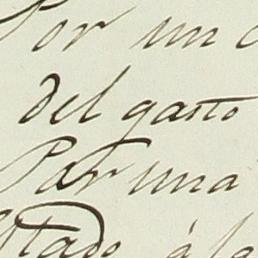 Por un
del gasto
Par una
á la